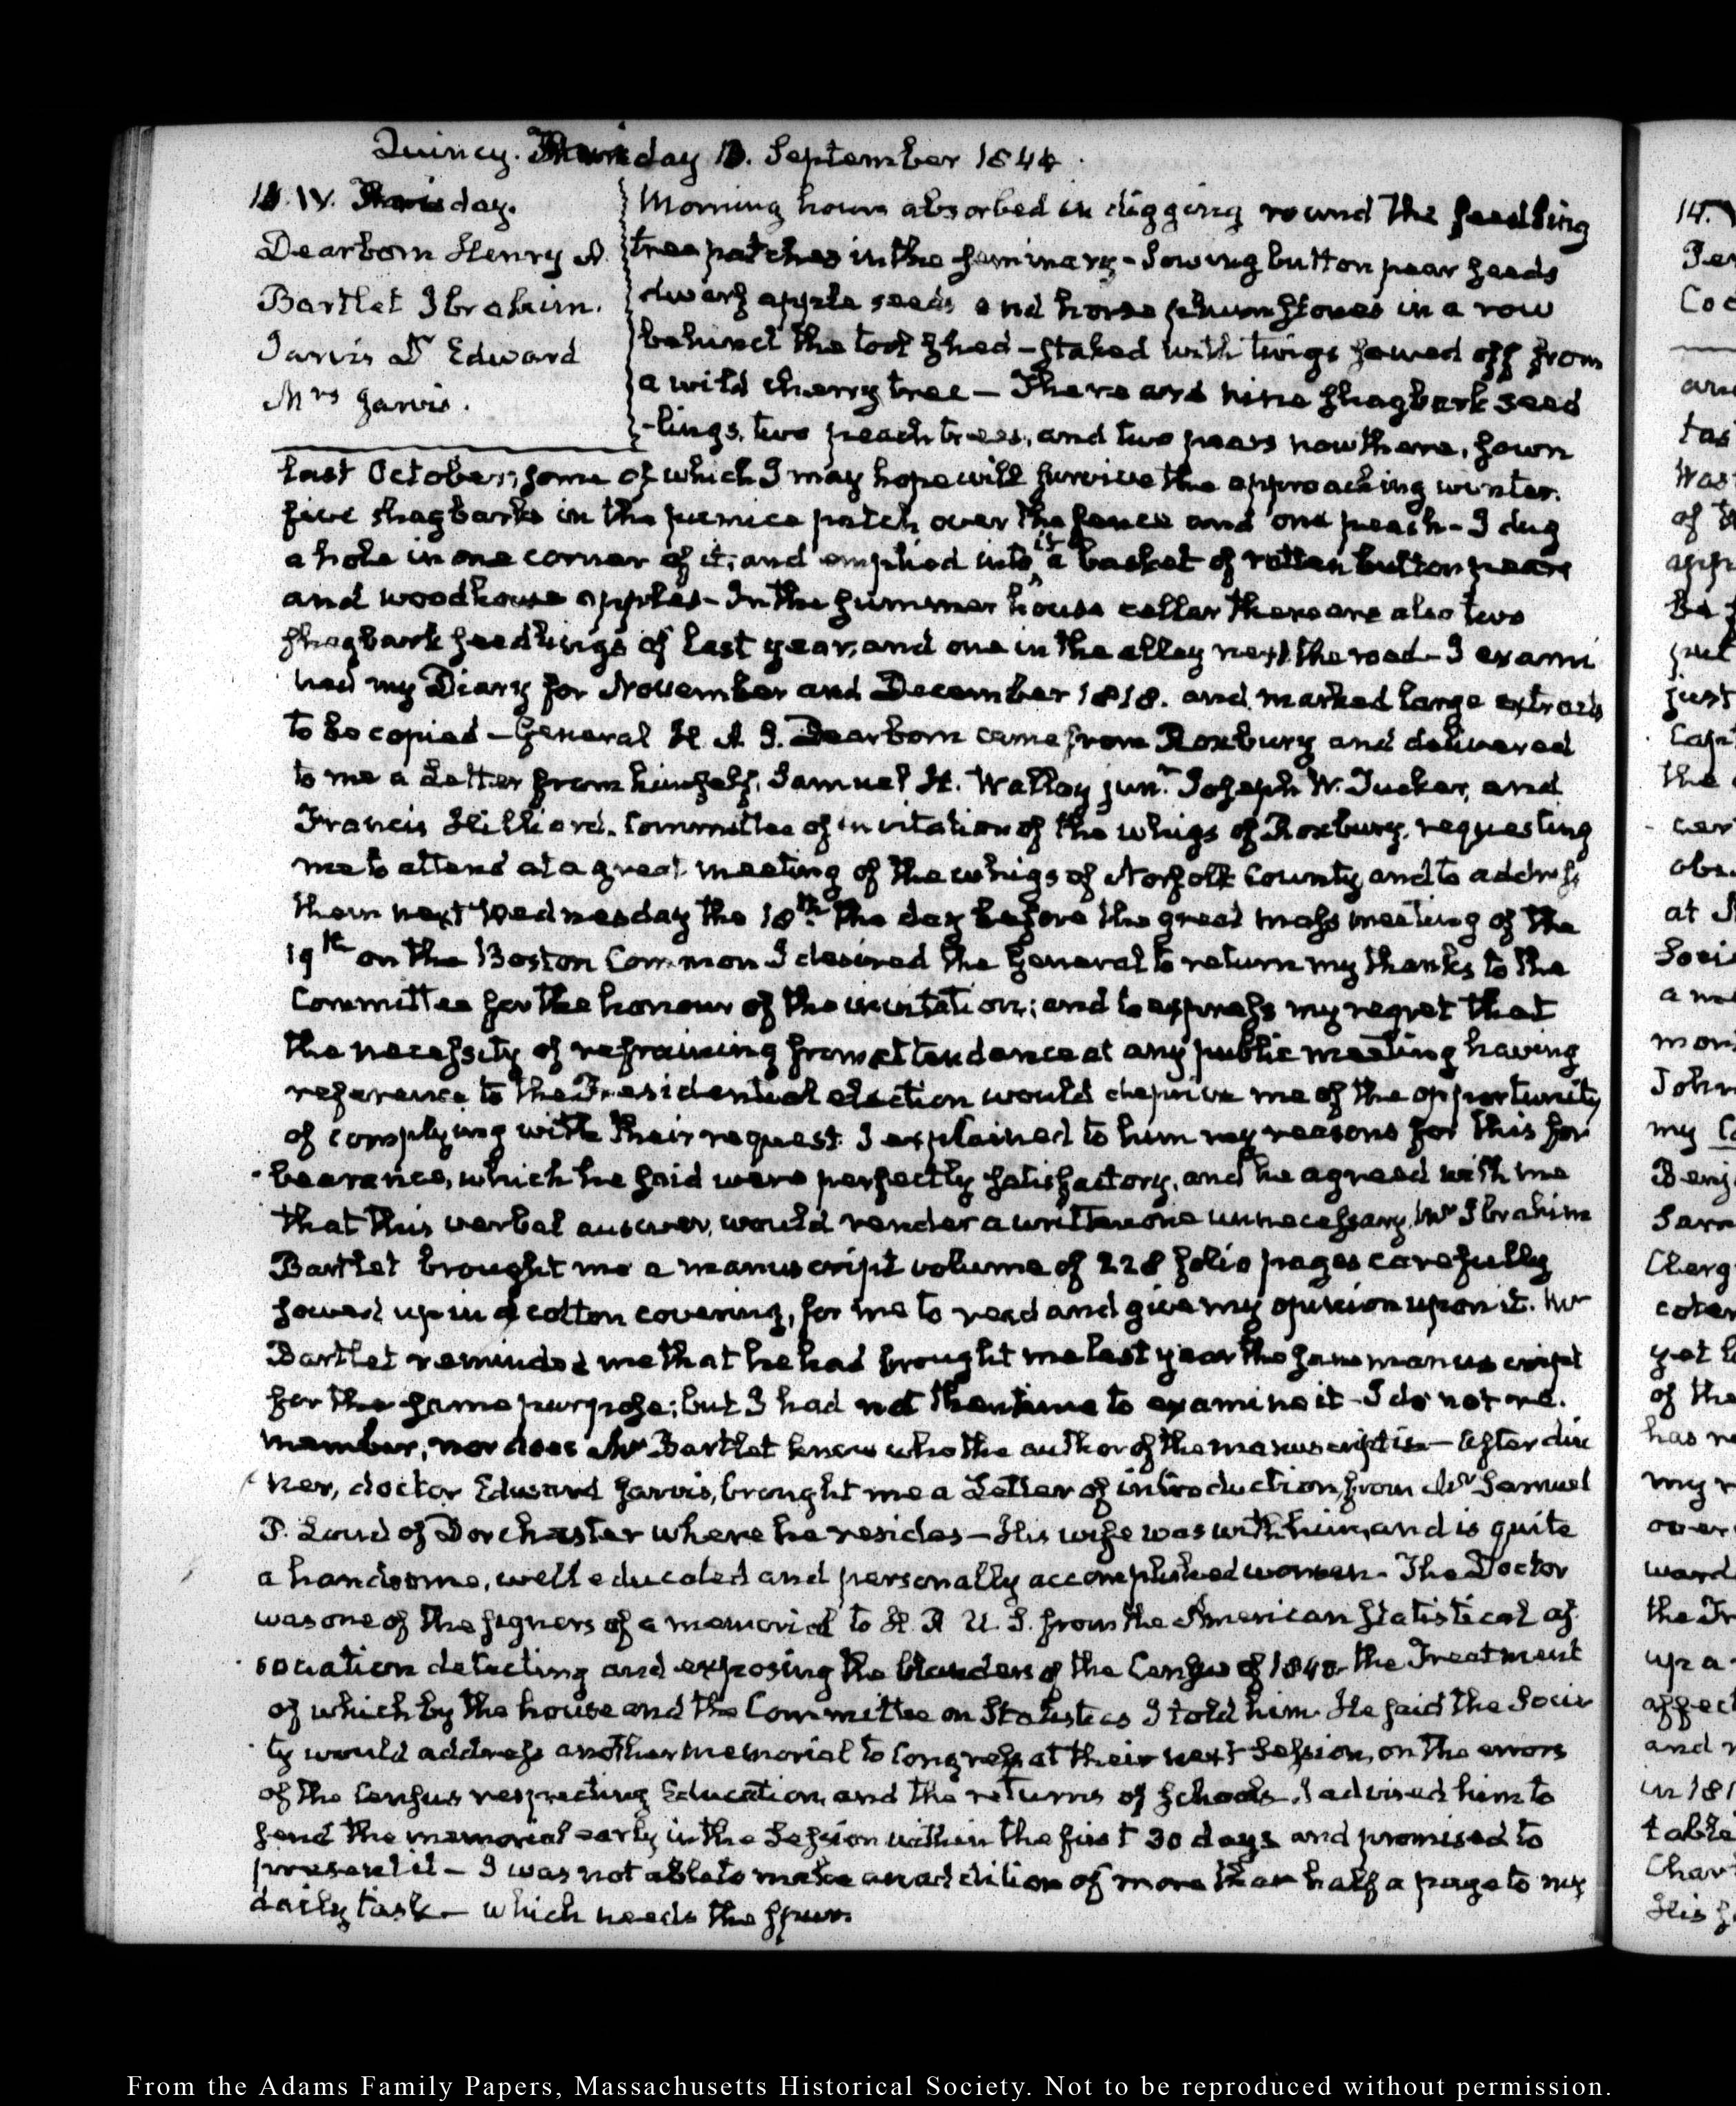 Quincy. Thursday 12. September 1844.
12. IV. Thursday.
Dearborn Henry A.
Bartlet Ibrahim.
Jarvis Dr. Edward
Mrs Jarvis.
Morning hours absorbed in digging round the seedling
tree patches in the seminary - Sowing button pear seeds
dwarf apple seeds and horse plum stones in a row
behind the tool shed - staked with twigs sawed off from
a wild cherry tree - There are nine shagbark seed
-lings, two peach trees, and two pears now there, sown
last October; some of which I may hope will survive the approaching winter.
five shagbarks in the pumice patch over the fence and one peach - I dug
a hole in one corner of it; and emptied into it a basket of rotten button pears
and woodhouse apples - In the summer house cellar there are also two
shagbark seedlings of last year, and one in the alley next the road - I exami
ned my Diary for November and December 1818. and marked large extracts
to be copied - General H. A. S. Dearborn came from Roxbury and delivered
to me a Letter from himself, Samuel H. Walley junr. Joseph W. Tucker, and
Francis Hilliard. Committee of invitation of the whigs of Roxbury, requesting
me to attend at a great meeting of the whigs of Norfolk County and to address
them next Wednesday the 18th. the day before the great mass meeting of the
19th on the Boston Common I desired the General to return my thanks to the
Committee for the honour of the invitation; and to express my regret that
the necessity of refraining from attendance at any public meeting having
reference to the Presidential election would deprive me of the opportunity
of complying with their request. I explained to him my reasons for this for
-bearance, which he said were perfectly satisfactory, and he agreed with me
that this verbal answer, would render a written one unnecessary. Mr Ibrahim
Bartlet brought me a manuscript volume of 228 folio pages carefully
sowed up in a cotton covering, for me to read and give my opinion upon it. Mr
Bartlet reminded me that he had brought me last year the same manuscript
for the same purpose; but I had not then time to examine it - I do not re.
member, nor does Mr Bartlet know who the author of the manuscript is - After din
ner, doctor Edward Jarvis, brought me a Letter of introduction, from Mr Samuel
P. Loud of Dorchester where he resides - His wife was with him, and is quite
a handsome, well educated and personally accomplished woman. The Doctor
was one of the signers of a memorial to H. R U. S. from the American Statistical as
-sociation detecting and exposing the blunders of the Census of 1840. the Treatment
of which by the house and the Committee on Statistics I told him. He said the Socie
-ty would address another memorial to Congress at their next Session, on the errors
of the Census respecting Education, and the returns of schools. I advised him to
send the memorial early in the Session within the first 30 days and promised to
present it - I was not able to make an addition of more than half a page to my
daily task - which needs the spur.
From the Adams Family Papers, Massachusetts Historical Society. Not to be reproduced without permission.